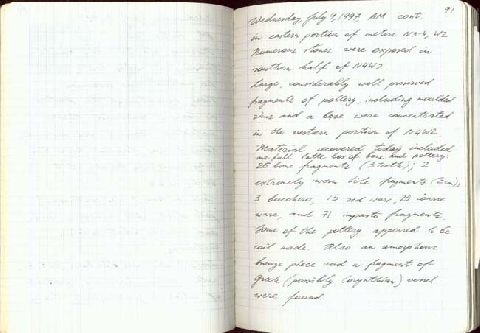 91
Wednesday July 9, 1997 AM cont.
on eastern portion of meters N3-4, W2
Numerous stones were exposed in
southern half of N4W2
Large, considerably well preserved
fragments of pottery, including moulded
rims and a base were concentrated
in the western portion of N4W2
Material recovered today included
one full latte box of bone and pottery.
25 bone fragments (3 teeth); 2
extremely worn tile fragments (3cm);
3 bucchero, 15 red ware, 23 coarse
ware, and 71 impasto fragments.
Some of the pottery appeared to be
coil made. Also an amorphous
bronze piece and a fragment of
Greek (possibly Corinthian) vessel
were found